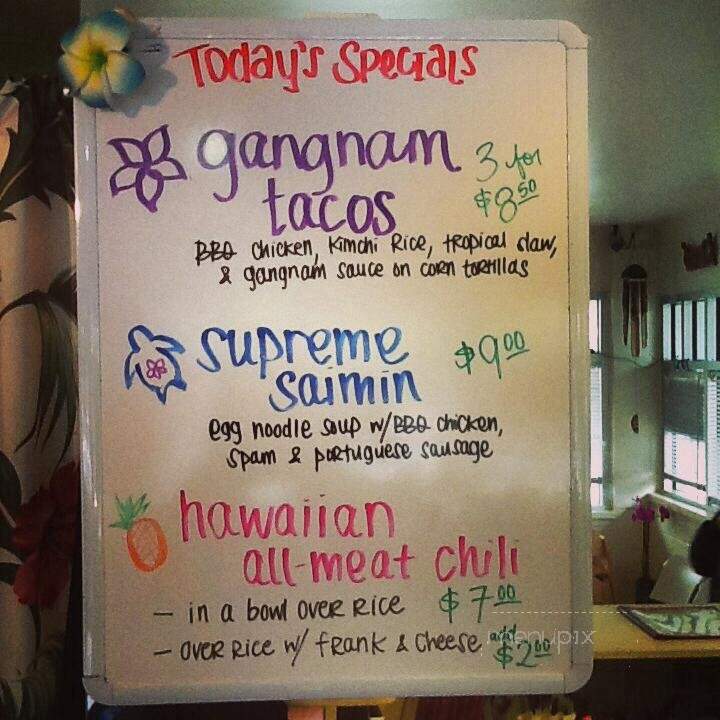 Today's Specials
gangnam
tacos
3 for
$8.50
BBQ chicken, kimchi Rice, tropical slaw,
& gangnam sauce on corn tortillas
supreme
saimin
$9.00
egg noodle soup w/ BBQ chicken,
spam & portuguese sausage
hawaiian
all-meat chili
- in a bowl over rice $7.00
- over rice w/ frank & cheese, add $2.00
menupix